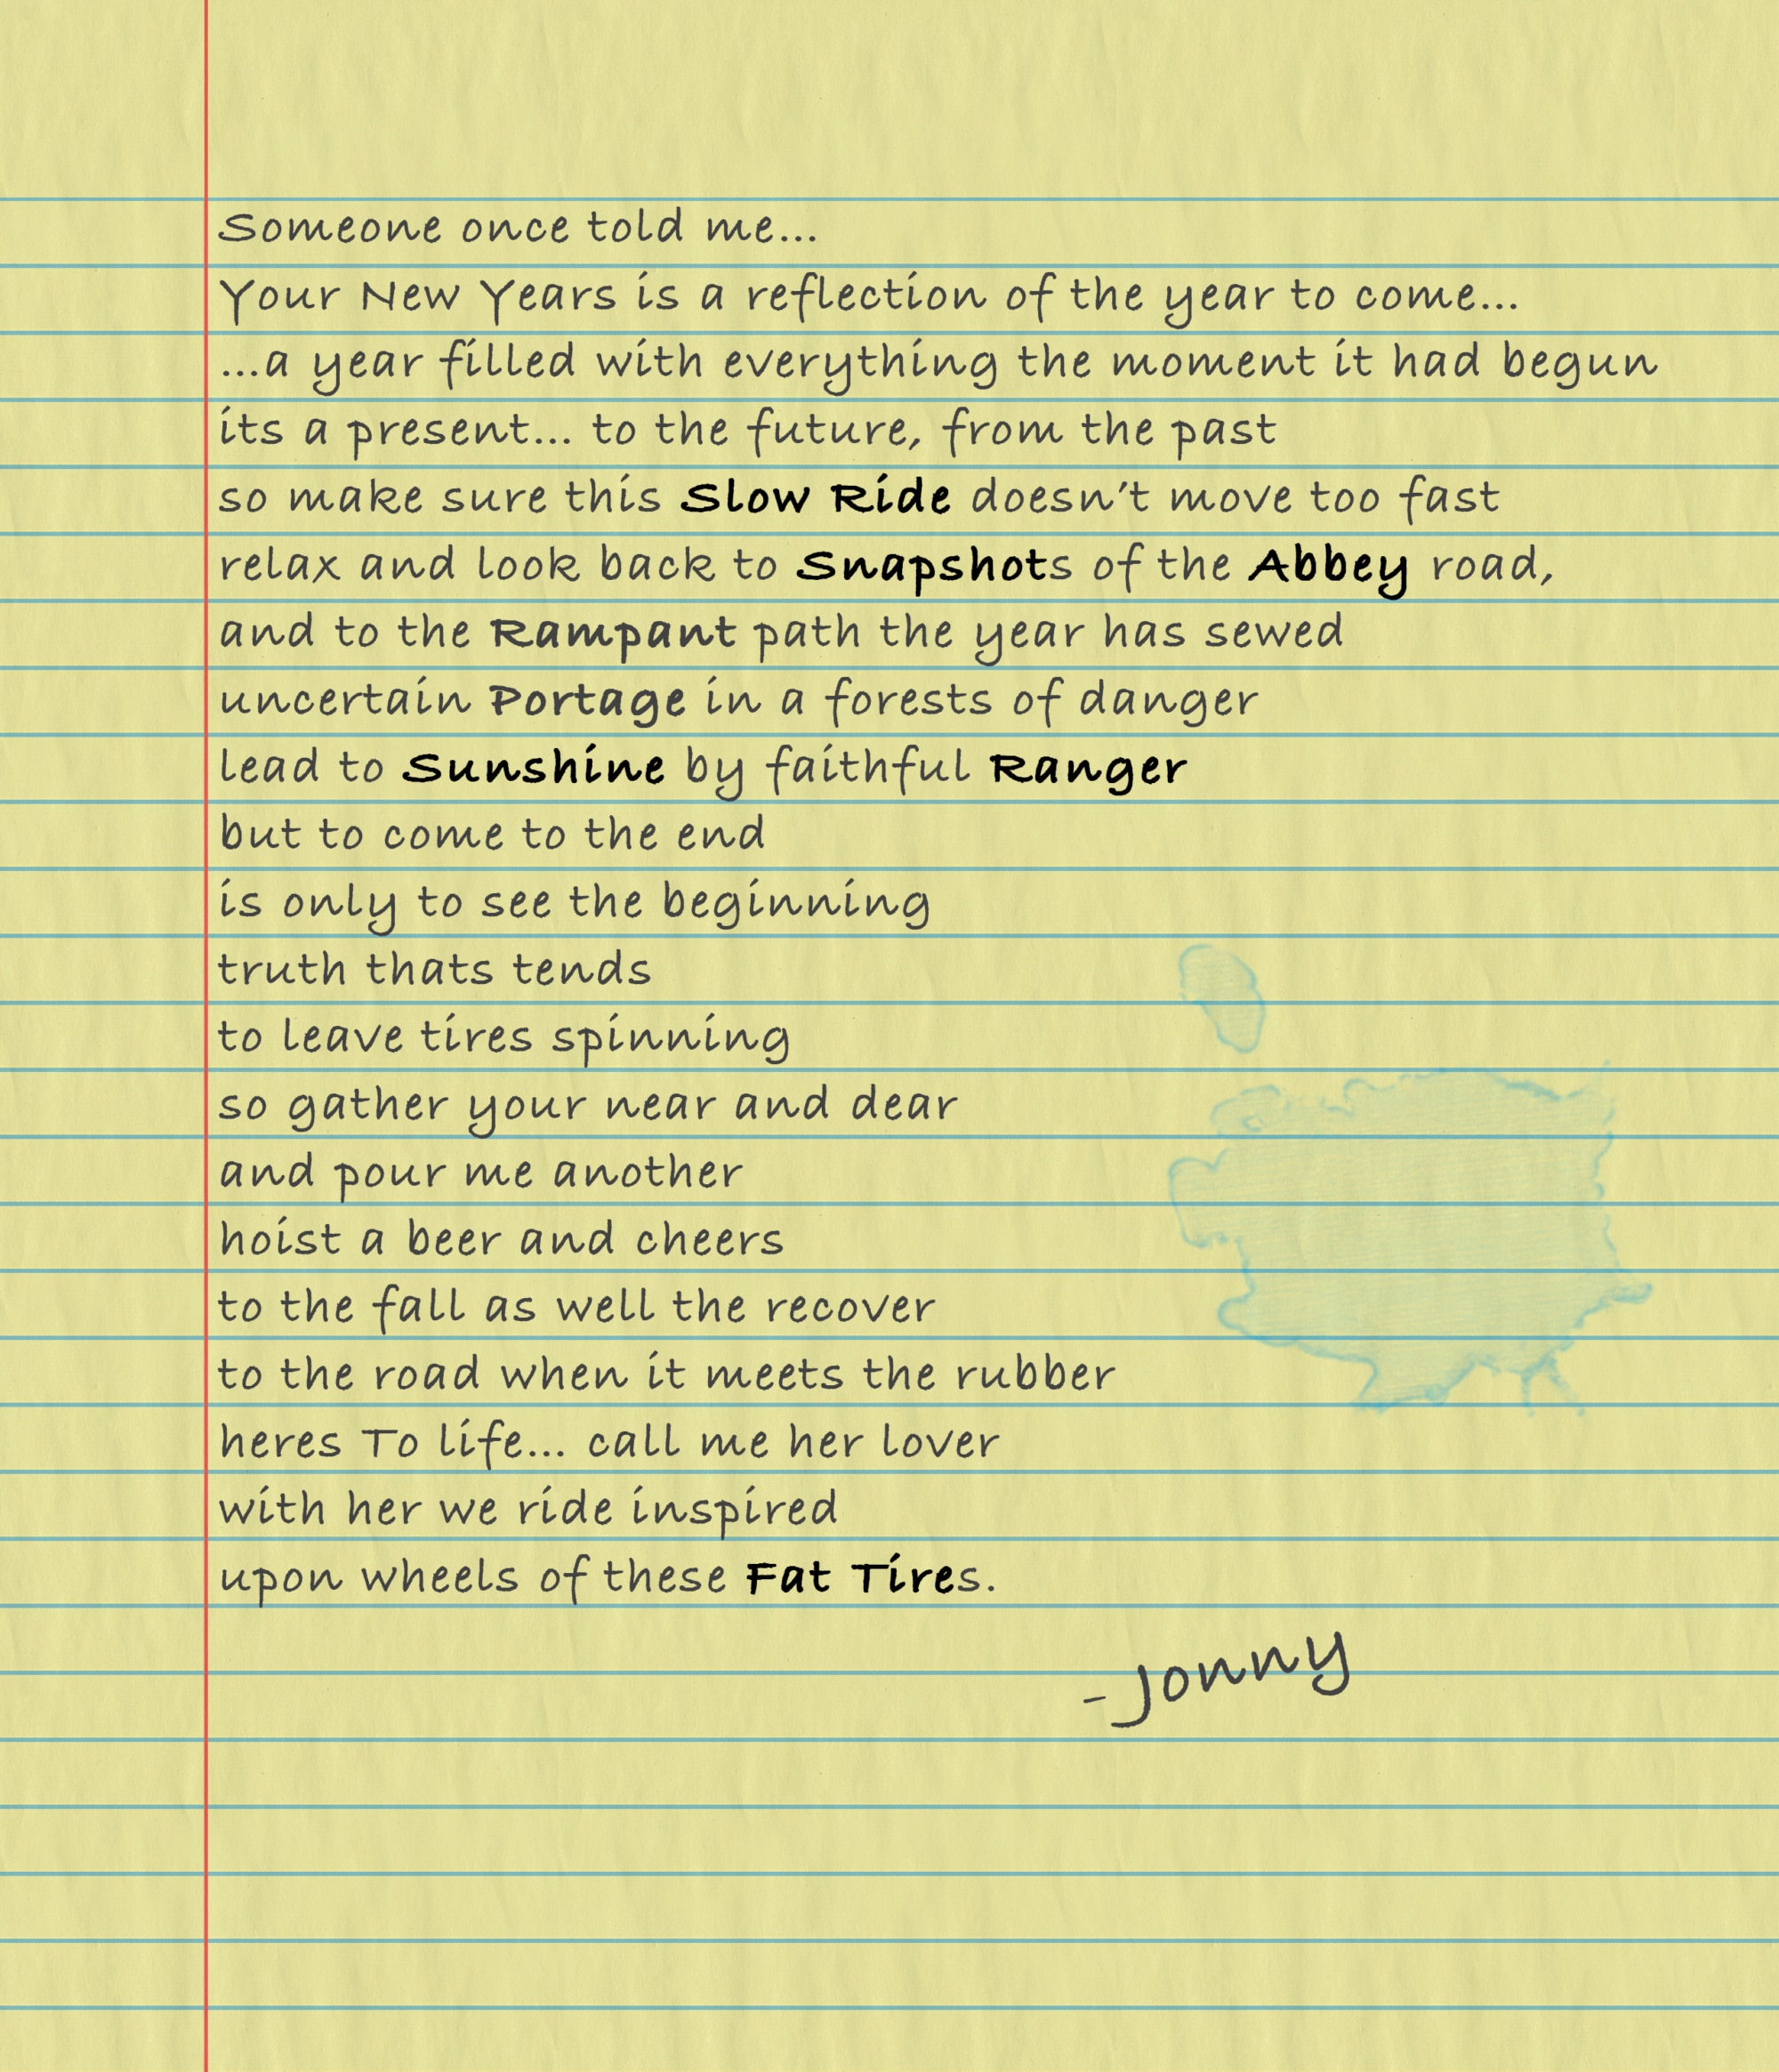 Someone once told me...
Your New Years is a reflection of the year to come...
...a year filled with everything the moment it had begun
its a present... to the future, from the past
so make sure this Slow Ride doesn't move too fast
relax and look back to Snapshots of the Abbey road,
and to the Rampant path the year has sewed
uncertain Portage in a forests of danger
lead to Sunshine by faithful Ranger
but to come to the end
is only to see the beginning
truth thats tends
to leave tires spinning
so gather your near and dear
and pour me another
hoist a beer and cheers
to the fall as well the recover
to the road when it meets the rubber
heres To life... call me her lover
with her we ride inspired
upon wheels of these Fat Tires.
-Jonny